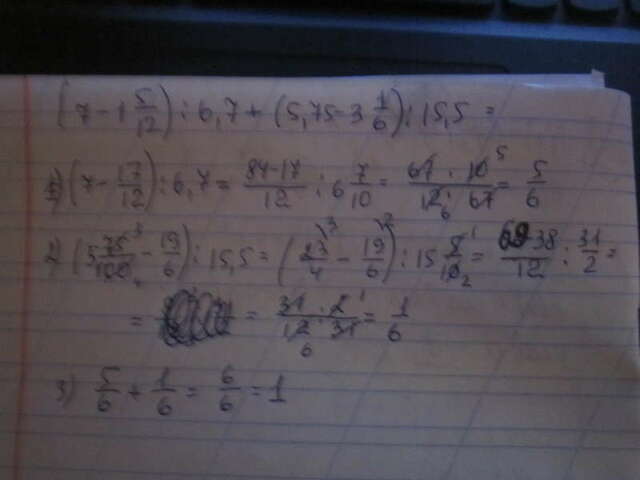 (7 - 1 5/12) : 6,7 + (5,75 - 3 1/6) : 15,5 =
1) (7 - 17/12) : 6,7 = 84-17/12 : 6 7/10 = 67 · 10 5/12 6 · 67 = 5/6
2) (5 75 3/100 4 - 19/6) : 15,5 = (23/4 \3 - 19/6 \2) : 15 5 1/10 2 = 69-38/12 : 31/2 =
= = 31 · 2 1/12 6 · 31 = 1/6
3) 5/6 + 1/6 = 6/6 = 1